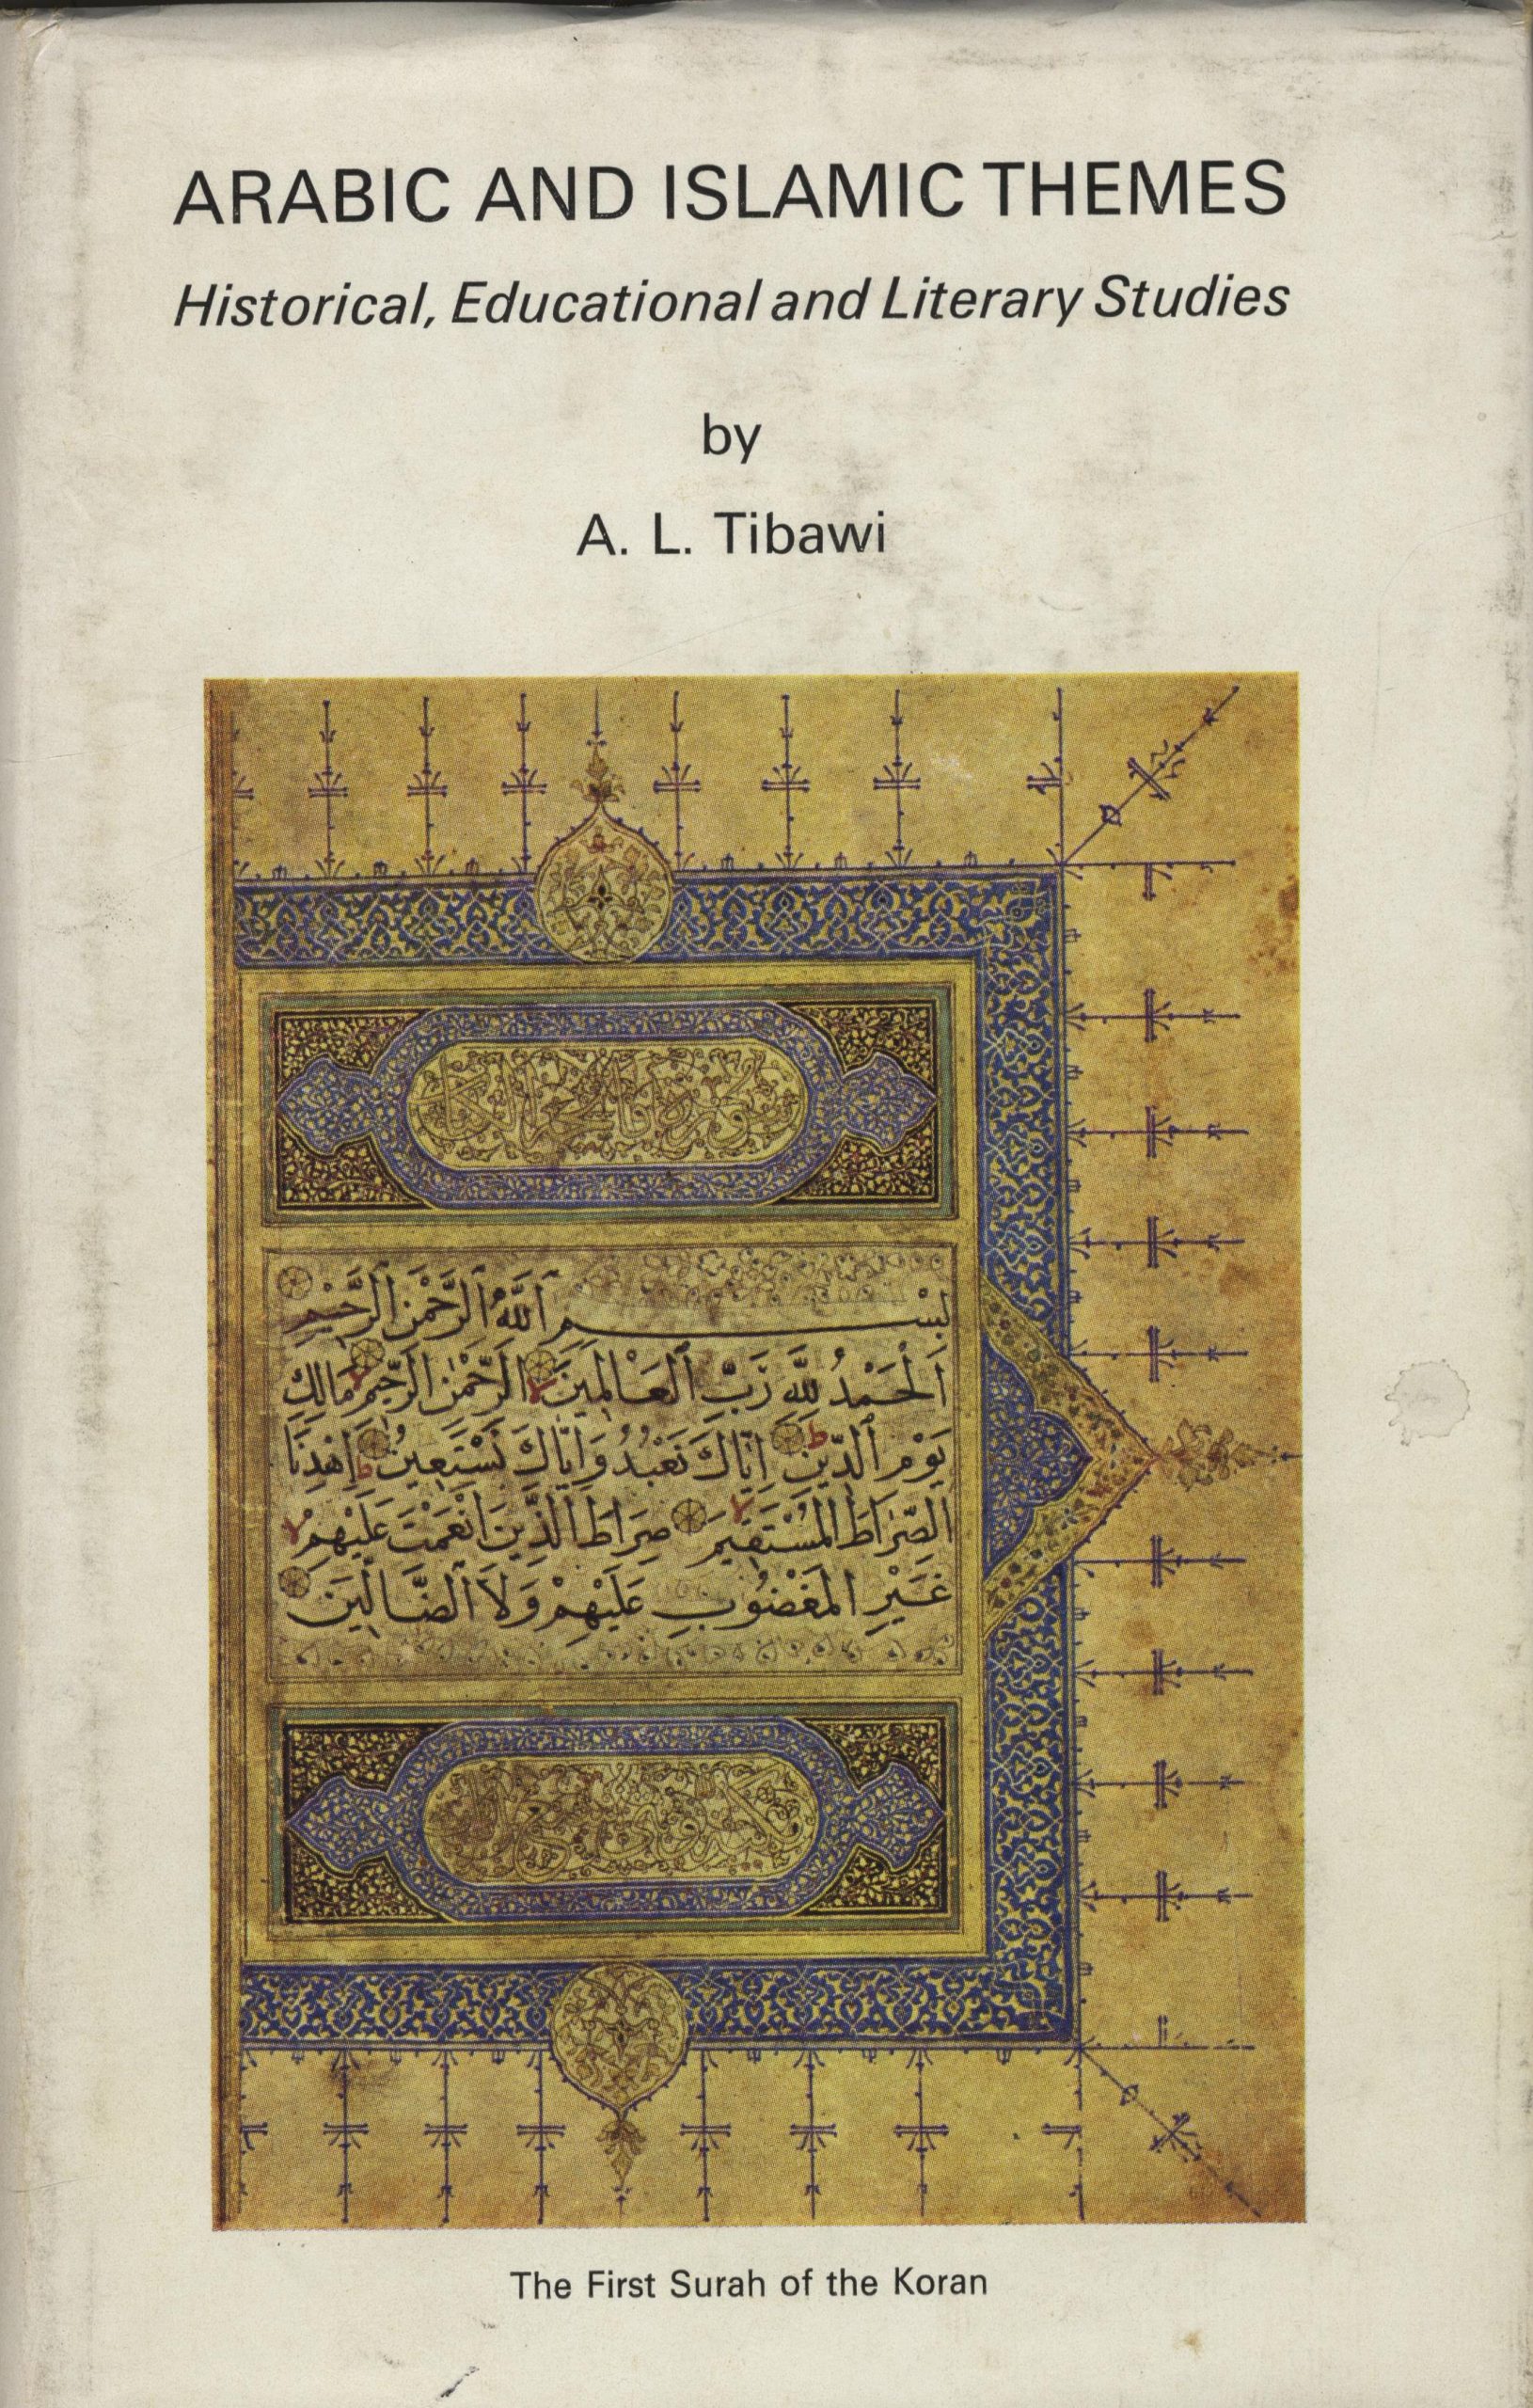 ARABIC AND ISLAMIC THEMES
Historical, Educational and Literary Studies
by
A. L. Tibawi
بِسْمِ ٱللَّهِ ٱلرَّحْمٰنِ ٱلرَّحِيمِ
اَلْحَمْدُ لِلّٰهِ رَبِّ ٱلْعَالَمِينَ لا اَلرَّحْمٰنِ الرَّحِيمِ لا مَالِكِ
يَوْمِ ٱلدِّينِ ط اِيَّاكَ نَعْبُدُ وَاِيَّاكَ نَسْتَعِينُ ط اِهْدِنَا
الصِّرَاطَ الْمُسْتَقِيمَ لا صِرَاطَ الَّذِينَ اَنْعَمْتَ عَلَيْهِمْ لا
غَيْرِ الْمَغْضُوبِ عَلَيْهِمْ وَلَا ٱلضَّالِّينَ
The First Surah of the Koran